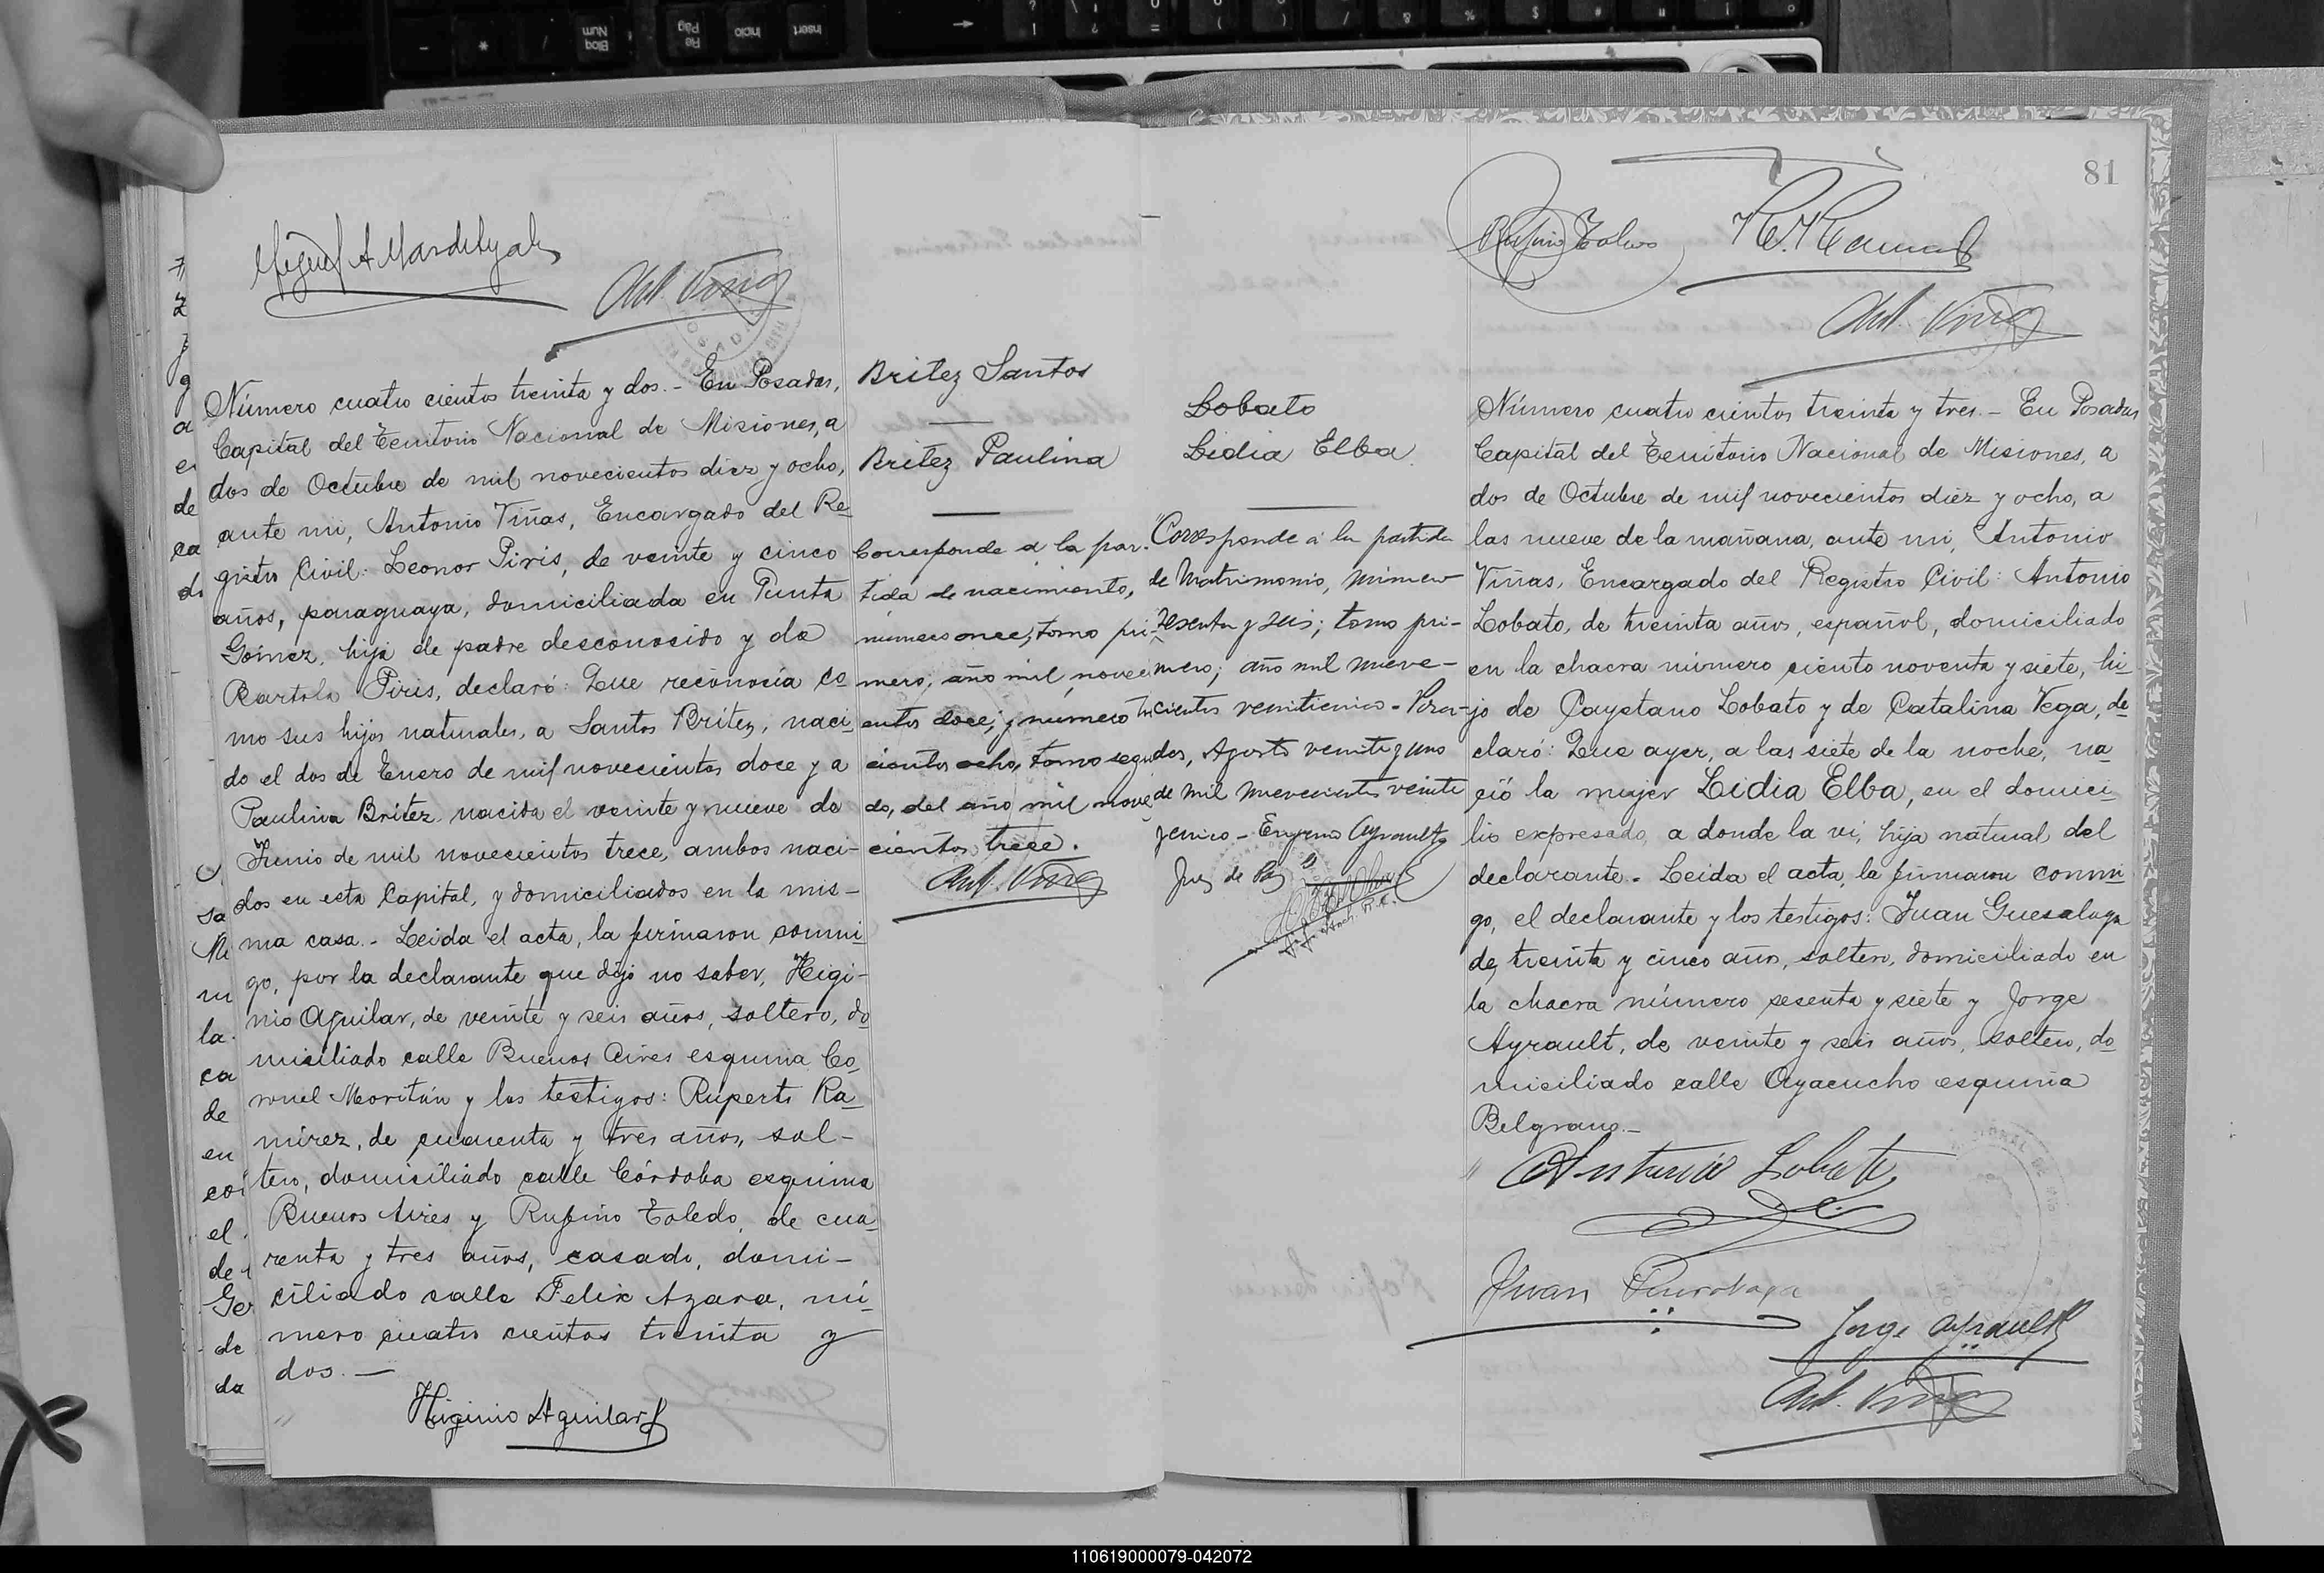 Ant. Viñas
Número cuatro cientos treinta y dos.- En Posadas,
Capital del Territorio Nacional de Misiones, a
dos de Octubre de mil novecientos diez y ocho,
ante mi, Antonio Viñas, Encargado del Re-
gistro Civil: Leonor Piris, de veinte y cinco
años, paraguaya, domiciliada en Punta
Gómez, hija de padre desconocido y de
Bartola Piris, declaró: Que reconocía co-
mo sus hijos naturales, a Santos Brítez, naci-
do el dos de Enero de mil novecientos doce y a
Paulina Brítez nacida el veinte y nueve de
Junio de mil novecientos trece, ambos naci-
dos en esta Capital, y domiciliados en la mis-
ma casa.- Leida el acta, la firmaron conmi-
go, por la declarante que dijo no saber, Higi-
nio Aguilar, de veinte y seis años, soltero, do-
miciliado calle Buenos Aires esquina Co-
ronel Moritán y los testigos: Ruperto Ra-
mirez, de cuarenta y tres años, sol-
tero, domiciliado calle Córdoba esquina
Buenos Aires y Rufino Toledo, de cua-
renta y tres años, casado, domi-
ciliado calle Felix Azara, nú-
mero cuatro cientos treinta y
dos.-
Higinio Aguilar
Britez Santos
Britez Paulina
Corresponde a la par-
tida de nacimiento,
número once, tomo pri-
mero, año mil nove
cientos doce; y número tres
cientos ocho, tomo segun
do, del año mil nove
cientos trece.
Ant. Viñas
Lobato
Lidia Elba
"Corresponde á la partida
de Matrimonio, número
sesenta y seis; tomo pri-
mero; año mil nueve-
cientos veinticinco - Posa-
das, Agosto veinte y uno
de mil novecientos veinte
y cinco - Eugenio Ayrault
Juez de Paz
81
Rufino Toledo
Ant. Viñas
Número cuatro cientos treinta y tres.- En Posadas
Capital del Territorio Nacional de Misiones, a
dos de Octubre de mil novecientos diez y ocho, a
las nueve de la mañana, ante mi, Antonio
Viñas, Encargado del Registro Civil: Antonio
Lobato, de treinta años, español, domiciliado
en la chacra número ciento noventa y siete, hi-
jo de Cayetano Lobato y de Catalina Vega, de-
claró: Que ayer, a las siete de la noche, na-
ció la mujer Lidia Elba, en el domici-
lio expresado, a donde la vi, hija natural del
declarante.- Leida el acta, la firmaron conmi
go, el declarante y los testigos: Juan Guesalaga
de treinta y cinco años, soltero, domiciliado en
la chacra número sesenta y siete y Jorge
Ayrault, de veinte y seis años, soltero, do-
miciliado calle Ayacucho esquina
Belgrano.-
Antonio Lobato
Juan
Jorge Ayrault
Ant. Viñas
110619000079-042072